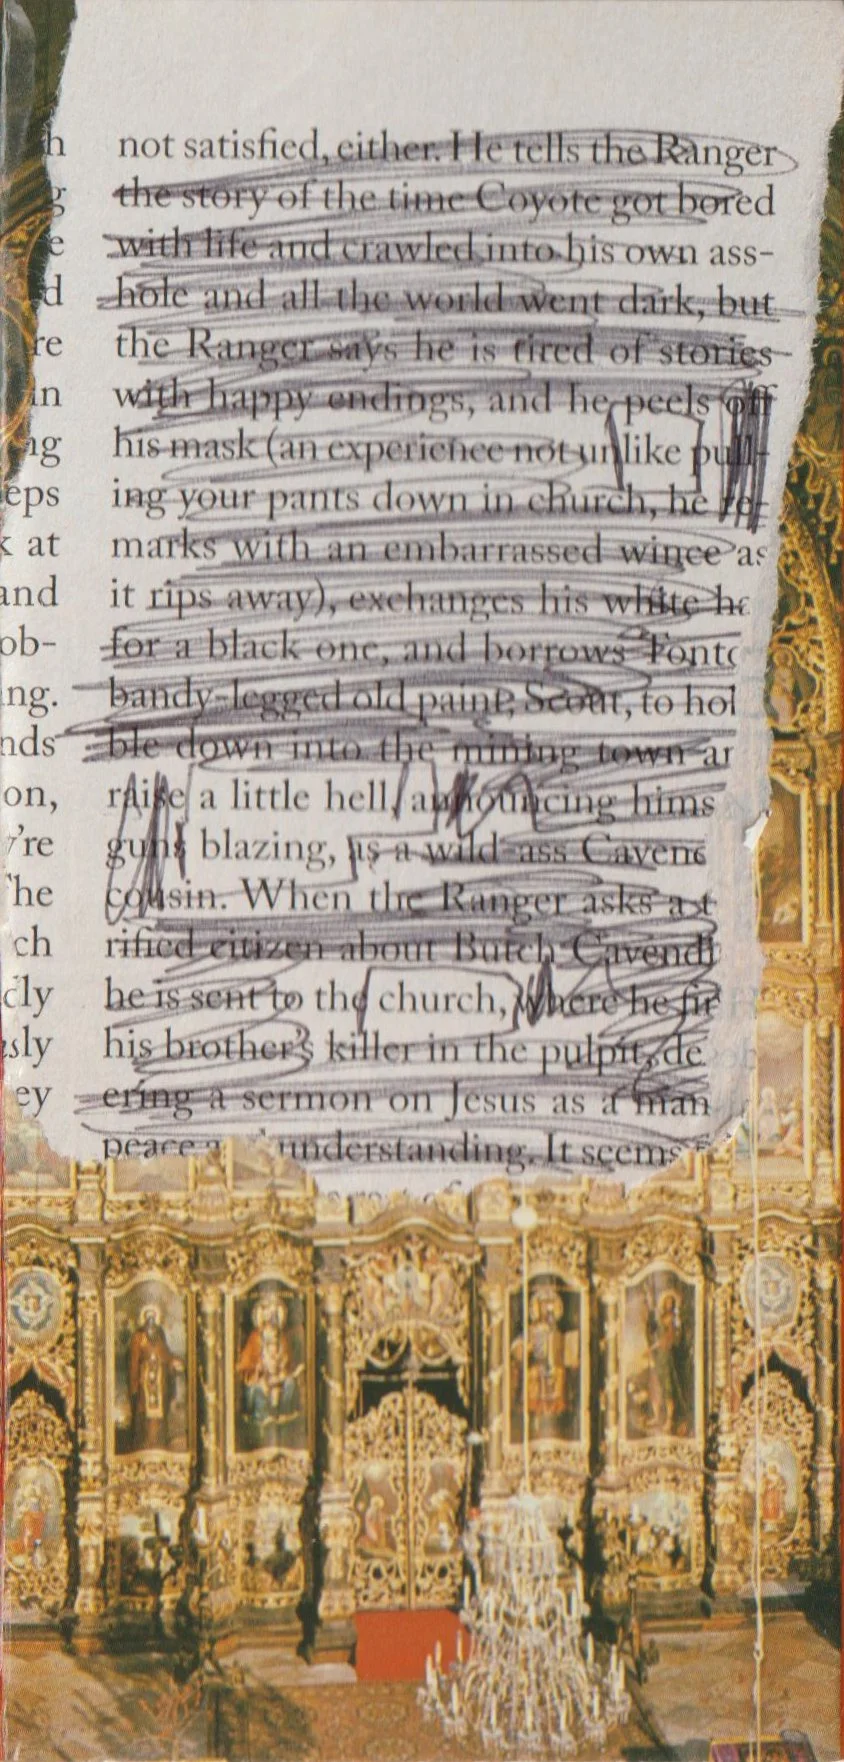 h not satisfied, either. He tells the Ranger
g the story of the time Coyote got bored
e with life and crawled into his own ass-
d hole and all the world went dark, but
re the Ranger says he is tired of stories
in with happy endings, and he peels off
ng his mask (an experience not unlike pull-
eps ing your pants down in church, he re-
k at marks with an embarrassed wince as
and it rips away), exchanges his white ha
ob- for a black one, and borrows Tonto
ng. bandy-legged old paint, Scout, to hol
nds ble down into the mining town ar
on, raise a little hell, announcing hims
're guns blazing, as a wild-ass Cavend
The cousin. When the Ranger asks a t
ch rified citizen about Butch Cavendi
dly he is sent to the church, where he fir
sly his brother's killer in the pulpit, de
ey ering a sermon on Jesus as a man
peace a understanding. It seems